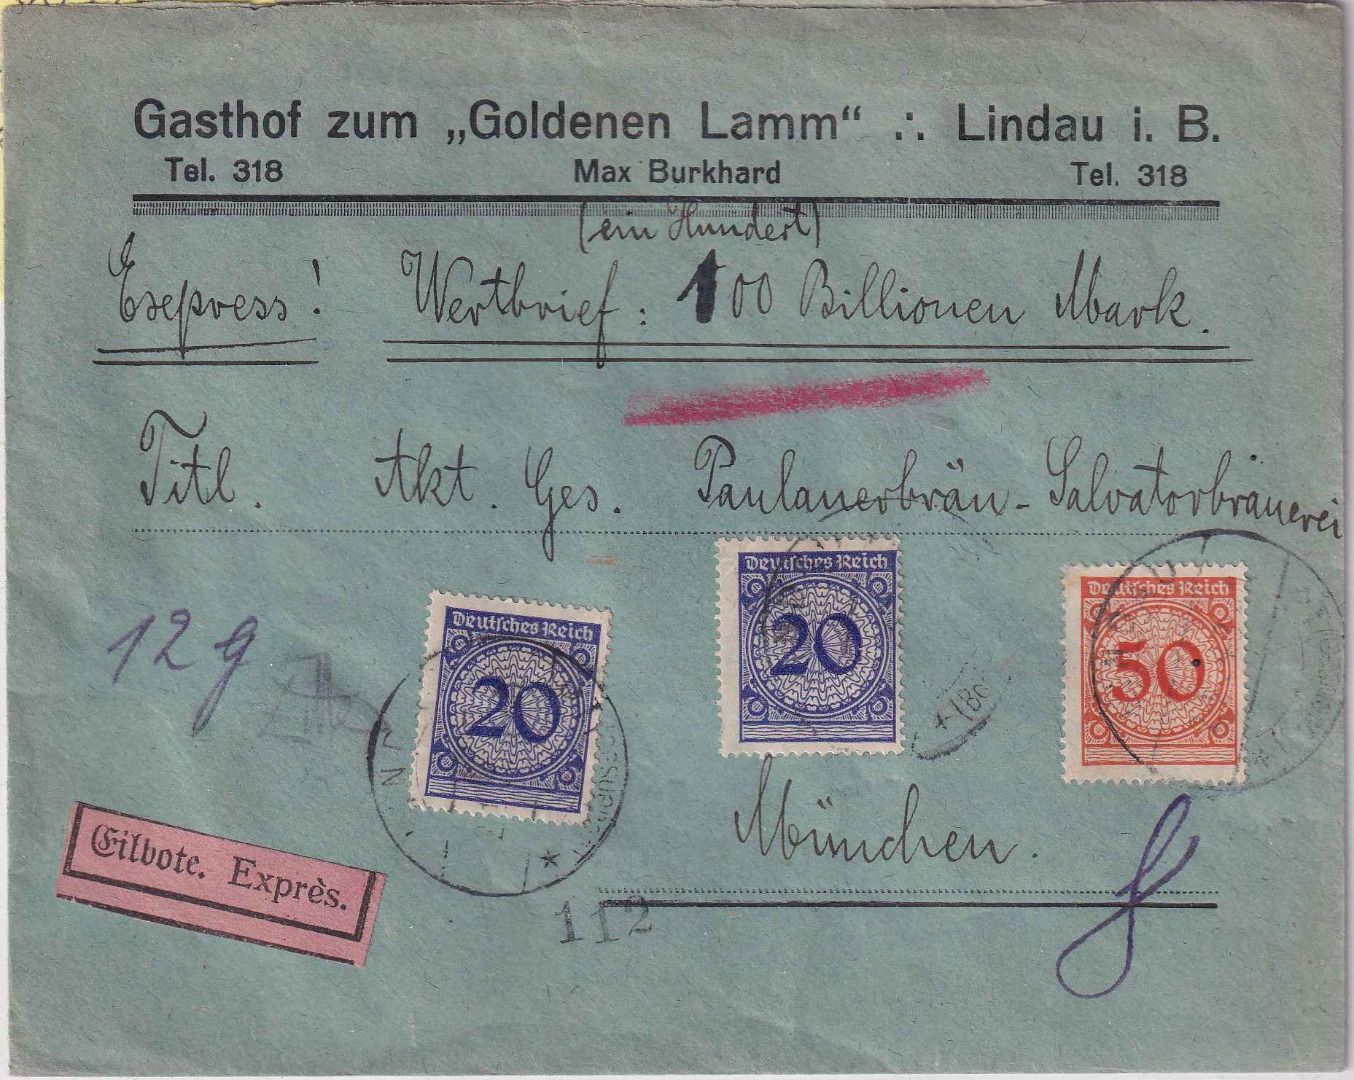 Gasthof zum „Goldenen Lamm“ ∴ Lindau i. B.
Tel. 318 Max Burkhard Tel. 318
(ein Hundert)
Express! Wertbrief: 100 Billionen Mark.
Titl. Akt. Ges. Paulanerbräu-Salvatorbrauerei
12 g
Deutsches Reich
20
Deutsches Reich
20
Deutsches Reich
50
München.
Eilbote. Exprès.
112